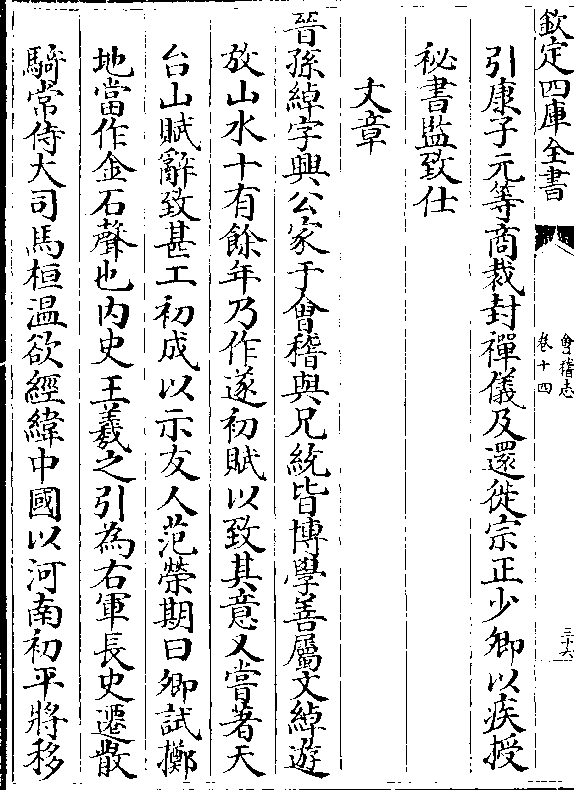 欽定四庫全書
會稽志
卷十四
三十六
引康子元等商裁封禪儀及還徙宗正少卿以疾授
秘書監致仕
文章
晉孫綽字興公家于㑹稽與兄統皆博學善屬文綽遊
放山水十有餘年乃作遂初賦以致其意又嘗著天
台山賦辭致甚工初成以示友人范榮期曰卿試擲
地當作金石聲也内史王羲之引為右軍長史遷散
騎常侍大司馬桓温欲經緯中國以河南初平將移